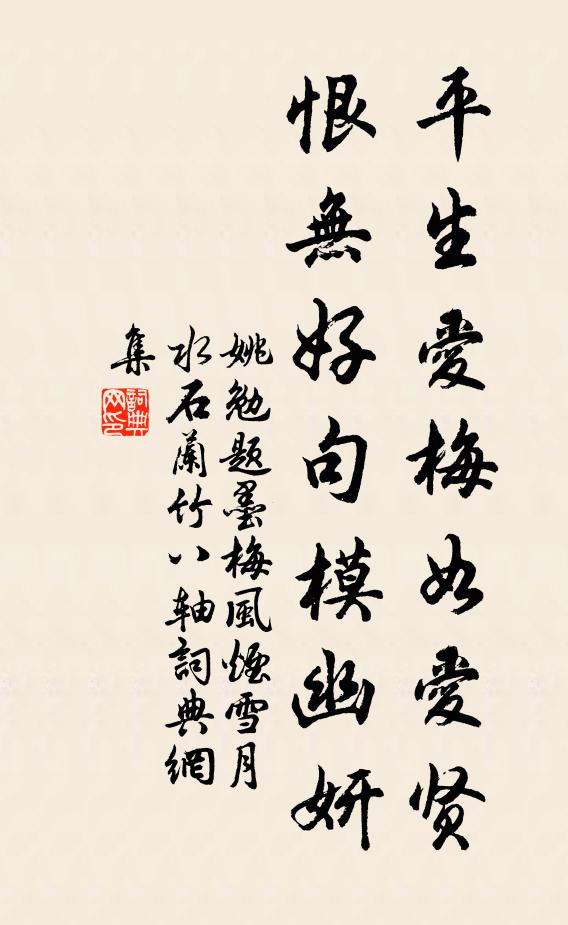 平生愛梅如愛贤
恨無好句模幽妍
姚勉题墨梅風煙雪月
水石蘭竹八轴詞典網
集
詞典
网印